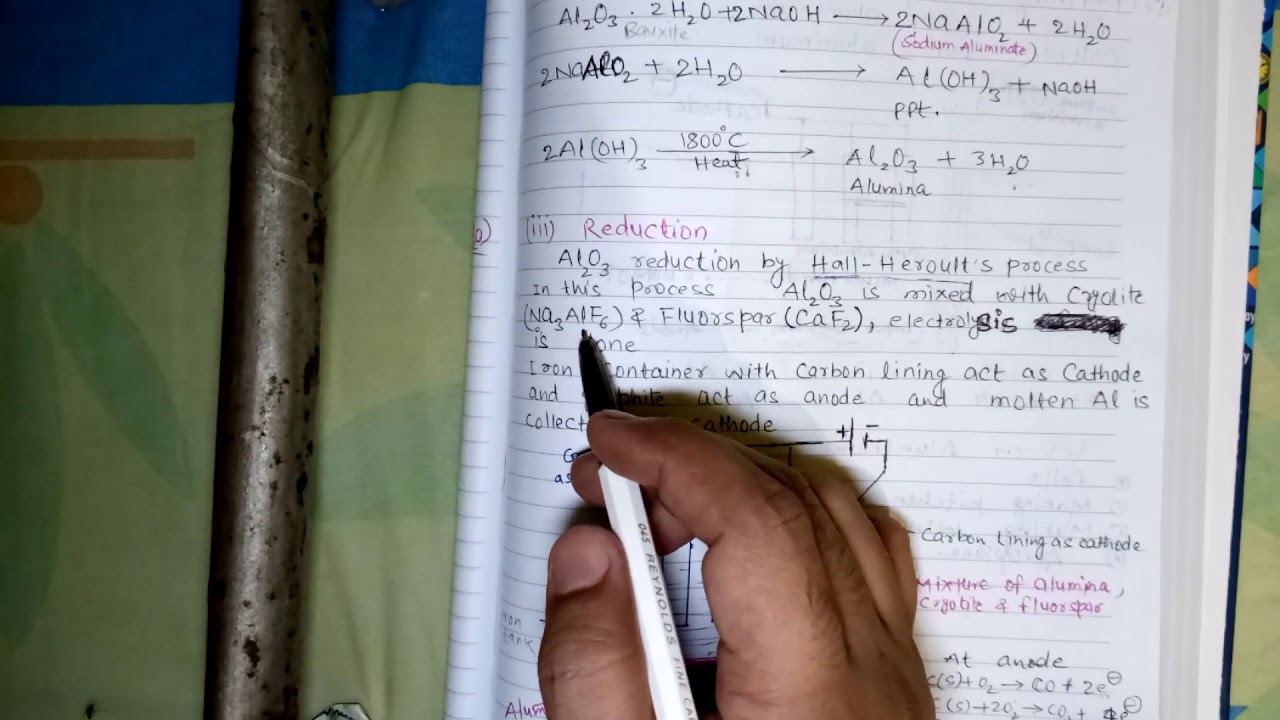 Al₂O₃ · 2H₂O + 2NaOH ⟶ 2NaAlO₂ + 2H₂O
Bauxite (Sodium Aluminate)
2NaAlO₂ + 2H₂O ⟶ Al(OH)₃ + NaOH
ppt.
2Al(OH)₃ 1800°C Heat ⟶ Al₂O₃ + 3H₂O
Alumina
(iii) Reduction
Al₂O₃ reduction by Hall-Heroult's process
In this process Al₂O₃ is mixed with Cryolite
(Na₃AlF₆) & Fluorspar (CaF₂), electrolysis
is
Iron container with carbon lining act as Cathode
and act as anode and molten Al is
cathode
+ -
as
Carbon lining as cathode
Mixture of alumina,
Cryolite & fluorspar
tank
At anode
C(s) + O₂ → CO + 2e⊖
C(s) + 2O₂ → CO₂ +
045 REYNOLDS FINE CA